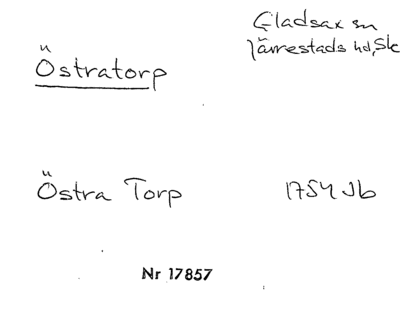 Gladsax sn
Järrestads hd, Sk
Östratorp
Östra Torp 1754 Jb
Nr 17857